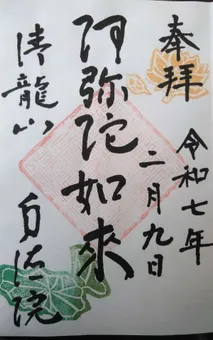 奉拝
令和七年
二月九日
阿弥陀如來
清龍山
自德院